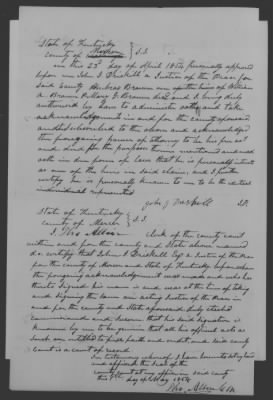 State of Kentucky
County of Mercer } S.S.
on this 23d day of April 1854 personally appeared
before me John J. Driskell a Justice of the Peace for
said County Ambrose Brown one of the heirs of William
A Brown & Mary J. Brown and I being duly
authorized by law to administer oaths and take
acknowledgments in and for the county aforesaid
and the foregoing power of attorney to be his free act
and deed for the purposes therein mentioned and made
oath in due form of law that he is personally interested
as one of the heirs in said claim, and I further
certify he is personally known to me to be the identical
individual represented
John J. Driskell J.P.
State of Kentucky
County of Mercer } S.S.
I Tho. Allin Clerk of the county court
within and for the county and State above named
do certify that John J. Driskell Esq a Justice of the Peace
for the county of Mercer and State of Kentucky before whom
the foregoing acknowledgment was made and who has
thereto signed his name is and was at the time of taking
and signing the same an acting Justice of the Peace in
and for the county and State aforesaid duly elected
commissioned and sworn that his said signature is
known by me to be genuine that all his official acts as
such are entitled to full faith and credit, and said county
court is a court of record
In testimony whereof I have hereunto set my hand
and affixed the seal of the
County Court at my office in said county
this day of May 1854
Tho. Allin Clk